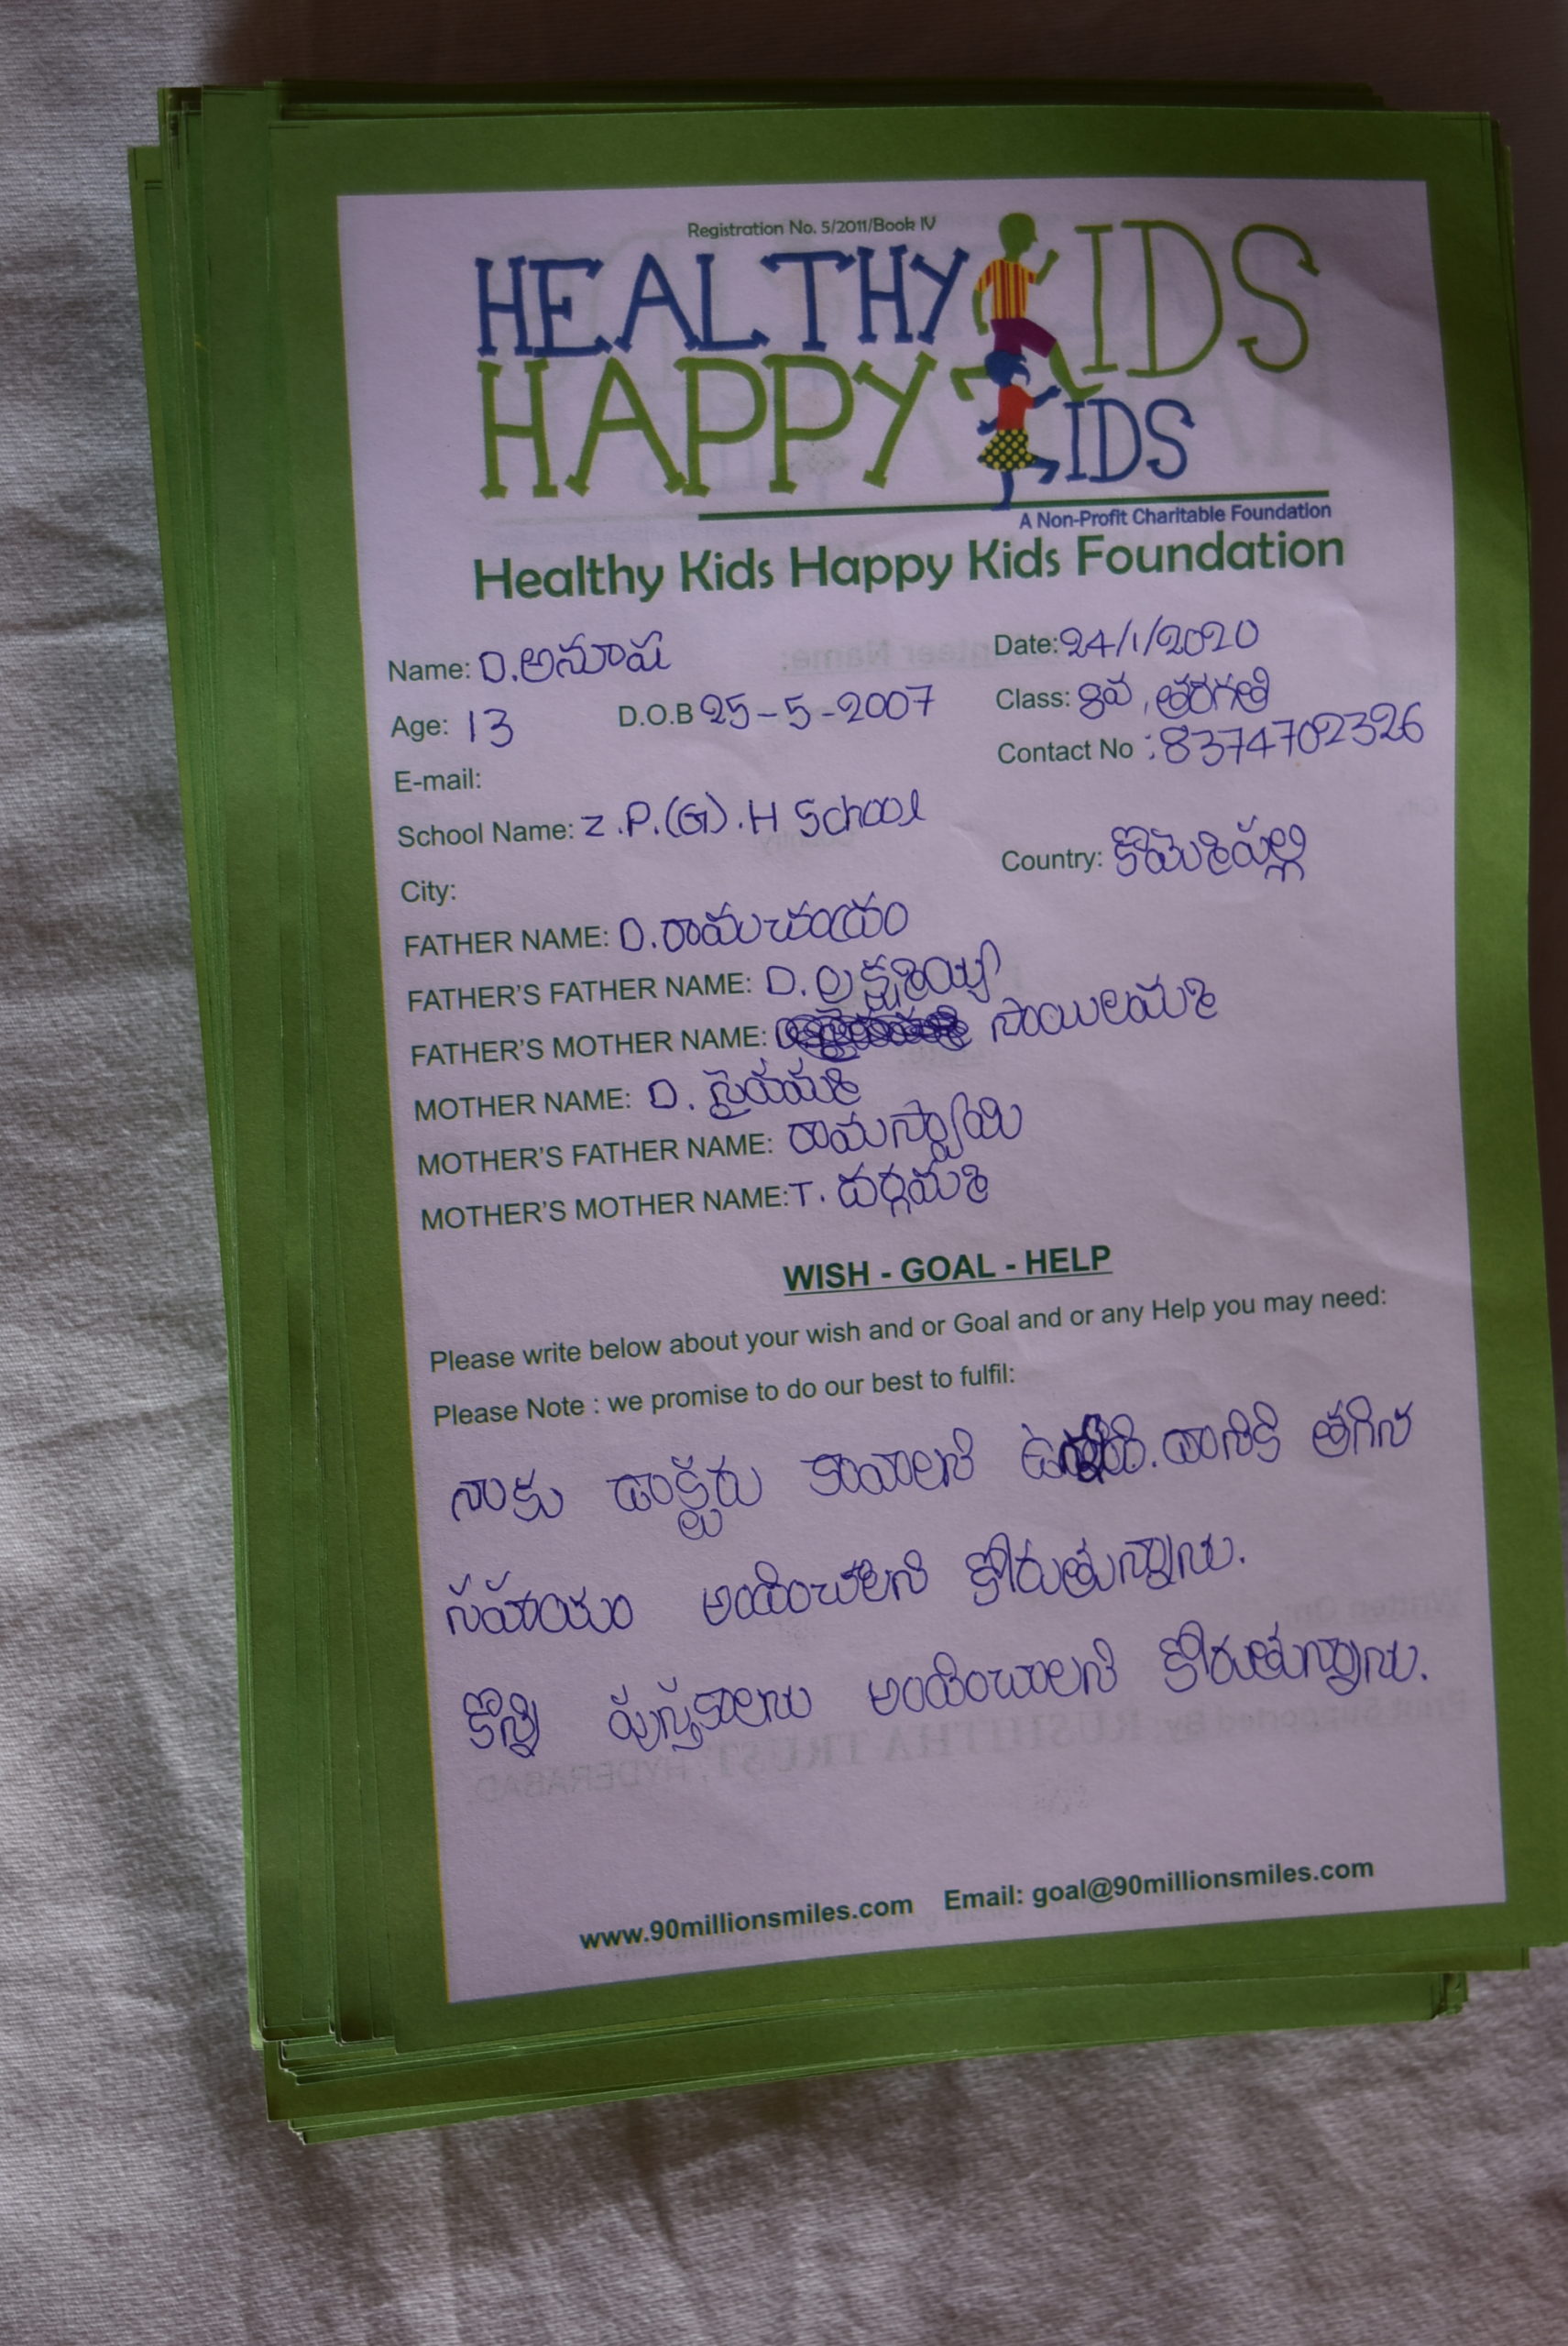 Registration No. 5/2011/Book IV
HEALTHY KIDS
HAPPY KIDS
A Non-Profit Charitable Foundation
Healthy Kids Happy Kids Foundation
Name: D.అనూష Date: 24/1/2020
Age: 13 D.O.B 25-5-2007 Class: 8వ, తరగతి
E-mail: Contact No : 8374702326
School Name: Z.P.(G).H School
City: Country:
FATHER NAME: D.రామచంద్రం
FATHER'S FATHER NAME: D.
FATHER'S MOTHER NAME: సాయిలమ్మ
MOTHER NAME: D.
MOTHER'S FATHER NAME:
MOTHER'S MOTHER NAME: T.
WISH - GOAL - HELP
Please write below about your wish and or Goal and or any Help you may need:
Please Note : we promise to do our best to fulfil:
నాకు డాక్టరు కావాలని దానికి తగిన
సహాయం అందించాలని కోరుతున్నాను.
కొన్ని పుస్తకాలను అందించాలని కోరుతున్నాను.
www.90millionsmiles.com Email: goal@90millionsmiles.com